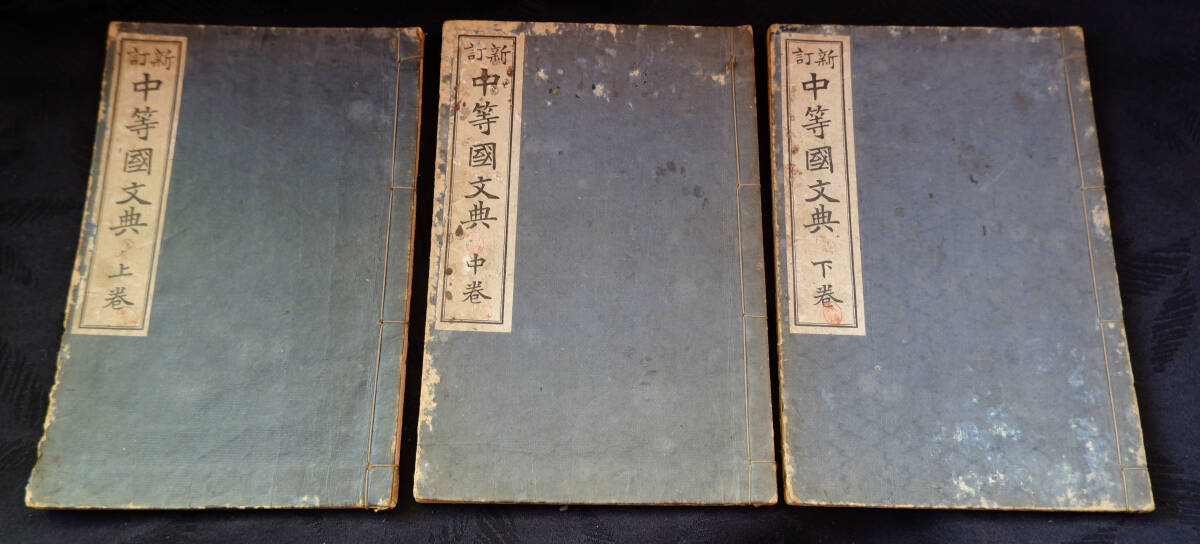 新訂
中等國文典
上卷
新訂
中等國文典
中卷
新訂
中等國文典
下卷